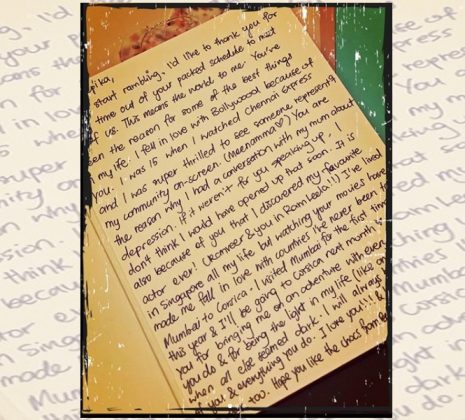 pika,
start rambling, I'd like to thank you for
time out of your packed schedule to meet
of us. This means the world to me. You've
een the reason for some of the best things
n my life. I fell in love with Bollywood because of
you. I was 15 when I watched Chennai Express
and I was super thrilled to see someone representing
my community on-screen. (Meenamma ♡) You are
the reason why I had a conversation with my mum about
depression. If it weren't for you speaking up, I
don't think I would have opened up that soon. It is
also because of you that I discovered my favourite
actor ever. (Ranveer & you in Ram Leela!!) I've lived
in Singapore all my life but watching your movies have
made me fall in love with countries I've never been to
Mumbai to Corsica. I visited Mumbai for the first time
this year & I'll be going to Corsica next month!!
you for bringing me on an adventure with
you do & for being the light in my life (like
when all else seemed dark. I will always
of you & everything you do. I love you!!!
too. Hope you like the chocs from